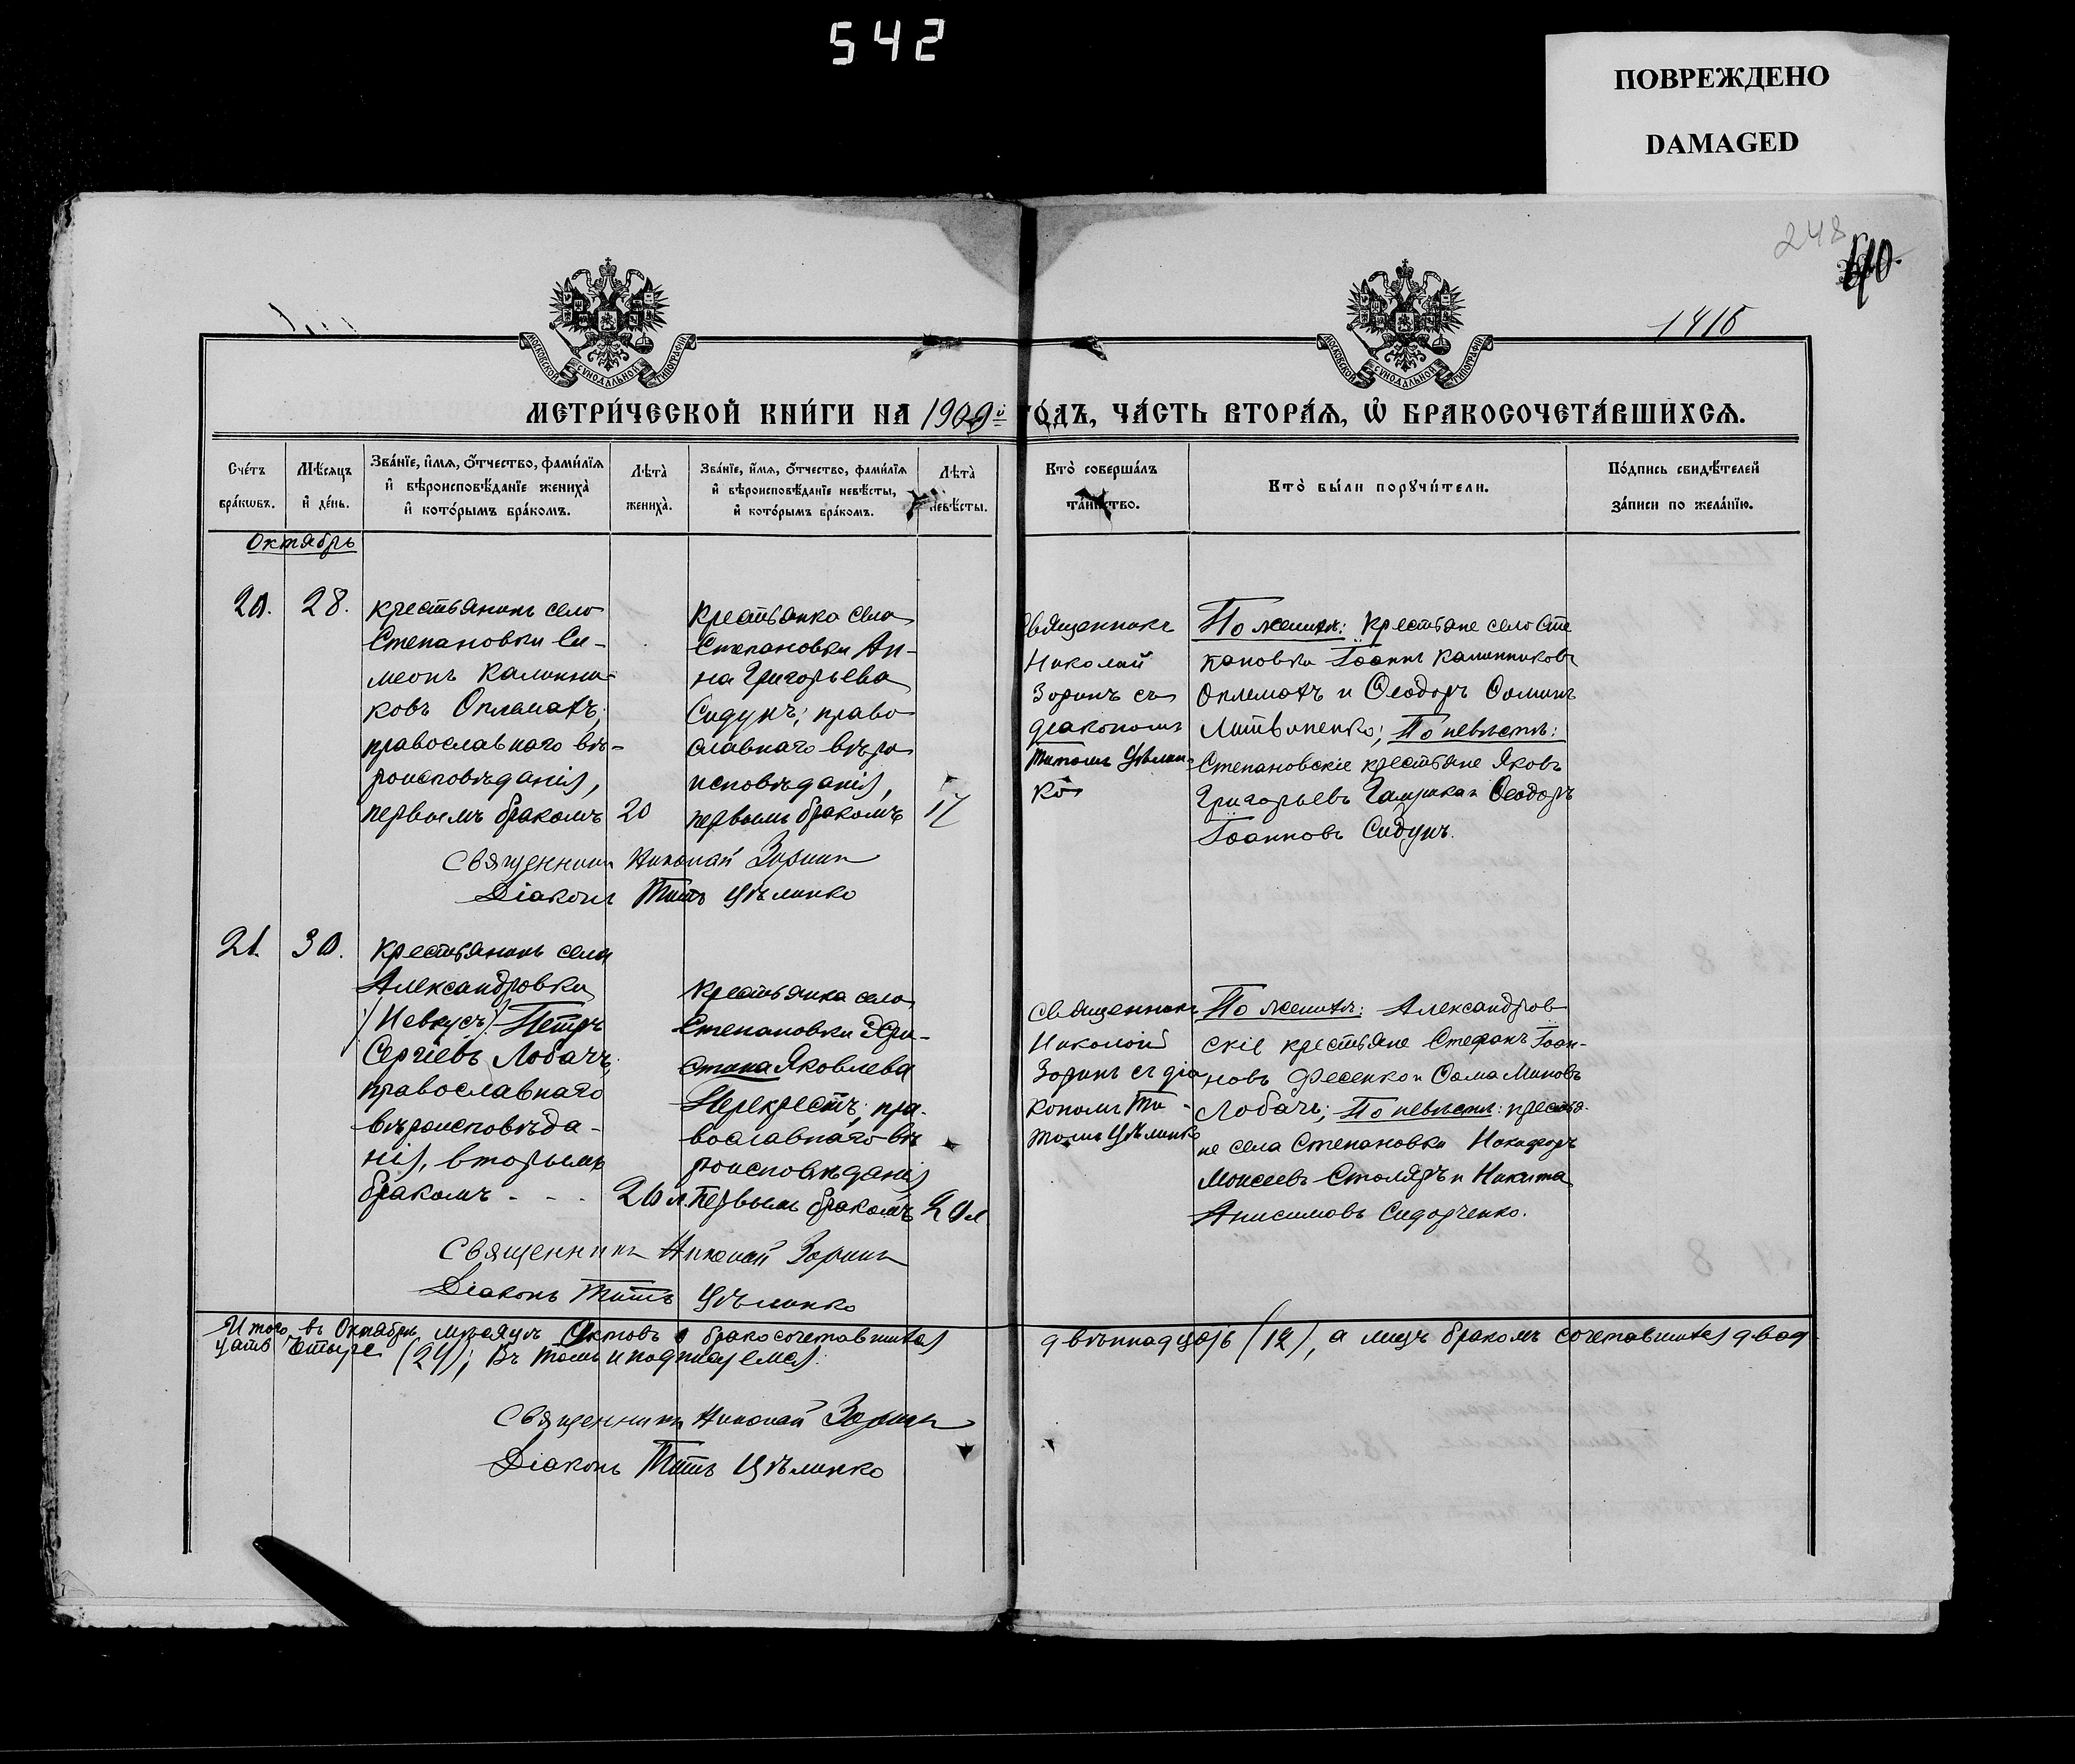 542
ПОВРЕЖДЕНО
DAMAGED
248
1416
МОСКОВСКОЙ СУНОДАЛЬНОЙ ТИПОГРАФІИ
МОСКОВСКОЙ СУНОДАЛЬНОЙ ТИПОГРАФІИ
МЕТРИ́ЧЕСКОЙ КНИ́ГИ НА 1909й ГО́ДЪ, ЧА́СТЬ ВТОРА́Ѧ, Ѡ҆ БРАКОСОЧЕТА́ВШИХСѦ.
Сче́тъ бра́кѡвъ.
Мѣ́сяцъ и҆ де́нь.
Зва́нїе, и҆́мѧ, ѻ҆́тчество, фами́лїѧ и҆ вѣроисповѣ́данїе жениха̀ и҆ кото́рымъ бра́комъ.
Лѣ́та̀ жениха̀.
Зва́нїе, и҆́мѧ, ѻ҆́тчество, фами́лїѧ и҆ вѣроисповѣ́данїе невѣ́сты, и҆ кото́рымъ бра́комъ.
Лѣ́та̀ невѣ́сты.
Кто̀ соверша́лъ та́инство.
Кто̀ бы́ли порꙋчи́тели.
По́дпись свидѣ́телей за́писи по жела́нїю.
Октябрь
20.
28.
крестьянинъ села
Степановки Си-
меонъ Калинни-
ковъ Оплематъ;
православнаго вѣ-
роисповѣданія,
первымъ бракомъ
20
крестьянка села
Степановки Ан-
на Григорьева
Сидунъ; право
славнаго вѣро
исповѣданія,
первымъ бракомъ
17
Священникъ
Николай
Зоринъ съ
діакономъ
Титомъ Цѣлин-
ко
По женихѣ: крестьяне села Сте
пановки Іоаннъ Калинниковъ
Оплематъ и Ѳеодоръ Ѳоминъ
Литвиненко; По невѣстѣ:
Степановскіе крестьяне Яковъ
Григорьевъ и Ѳеодоръ
Іоанновъ Сидунъ.
Священникъ Николай Зоринъ
Діаконъ Титъ Цѣлинко
21.
30.
крестьянинъ села
Александровки
/Невкусъ/ Петръ
Сергіевъ Лобачъ;
православнаго
вѣроисповѣда-
нія, вторымъ
бракомъ - - -
26 л.
крестьянка села
Степановки Хри-
стина Яковлева
Перекрестъ; пра-
вославнаго вѣ
роисповѣданія
первымъ бракомъ
20 л
священникъ
Николай
Зоринъ съ діа
кономъ Ти-
томъ Цѣлинко
По женихѣ: Александров
скіе крестьяне Стефанъ Іоан-
новъ Фесенко и Ѳома Миновъ
Лобачъ; По невѣстѣ: крестья-
не села Степановки Никифоръ
Моисеевъ Столяръ и Никита
Анисимовъ Сидорченко.
Священникъ Николай Зоринъ
Діаконъ Титъ Цѣлинко
Итого въ Октябрѣ мѣсяцѣ Актовъ о бракосочетавшихся двѣннадцать (12), а лицъ бракомъ сочетавшихся двад
цать четыре (24); Въ томъ и подписуемся:
Священникъ Николай Зоринъ
Діаконъ Титъ Цѣлинко